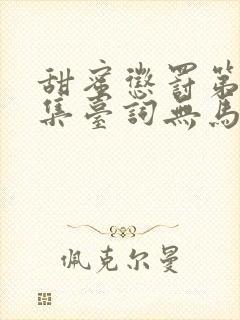 甜蜜懲罰第
集臺詞無馬
佩克尔曼